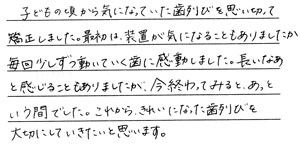 子どもの頃から気になっていた歯列びを思い切って
矯正しました。最初は、装置が気になることもありましたが
毎回少しずつ動いていく歯に感動しました。長いなあ
と感じることもありましたが、今終わってみると、あっと
いう間でした。これから、きれいになった歯列びを
大切にしていきたいと思います。